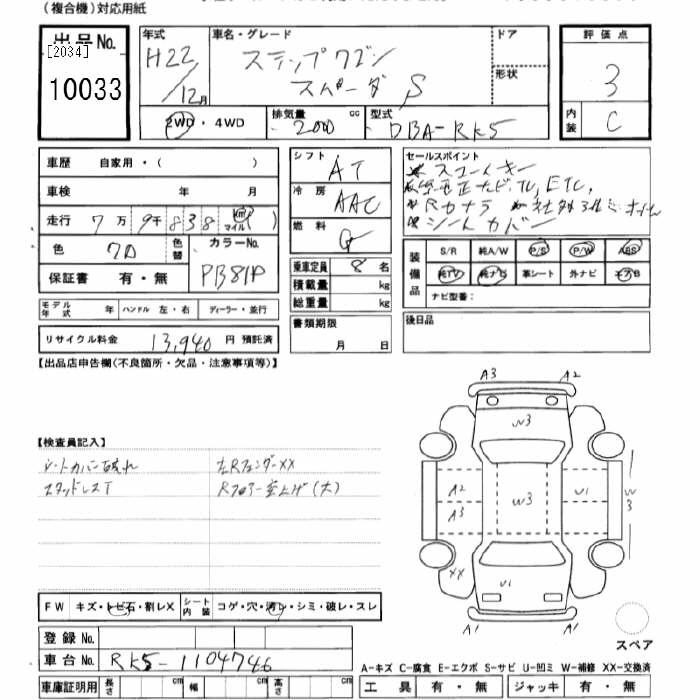 (複合機)対応用紙
出品No.
[2034]
10033
年式
H22/12月
車名・グレード
ステップワゴン
スパーダ S
ドア
形状
評価点
3
内装
C
2WD・4WD
排気量 2000 cc
型式 DBA-RK5
車歴 自家用・( )
車検 年 月
走行 7万9千838 km マイル ( )
色
色替
カラーNo.
PB81P
保証書 有・無
シフト AT
冷房 AAC
燃料 G
乗車定員 8 名
積載量 kg
総重量 kg
書類期限
月 日
セールスポイント
スマートキー
純正ナビTV, ETC,
Rカメラ
シートカバー
装備品
S/R 純A/W P/S P/W ABS
純TV 純ナビ 革シート 外ナビ エアB
ナビ型番:
後日品
モデル年式 年 ハンドル 左・右 ディーラー・並行
リサイクル料金 13,940 円 預託済
【出品店申告欄(不良箇所・欠品・注意事項等)】
【検査員記入】
シートカバー破れ
スタッドレスT
左RフェンダーXX
Rフロアー突上げ(大)
A3 A2
W3
A2
A3
W3
U1
W3
XX
U1
A1 A1
スペア
FW キズ・トビ石・割レX シート内装 コゲ・穴・汚レ・シミ・破レ・スレ
登録No.
車台No. RK5-1104746
車庫証明用 長さ cm 幅 cm 高さ cm
A-キズ C-腐食 E-エクボ S-サビ U-凹ミ W-補修 XX-交換済
工具 有・無 ジャッキ 有・無